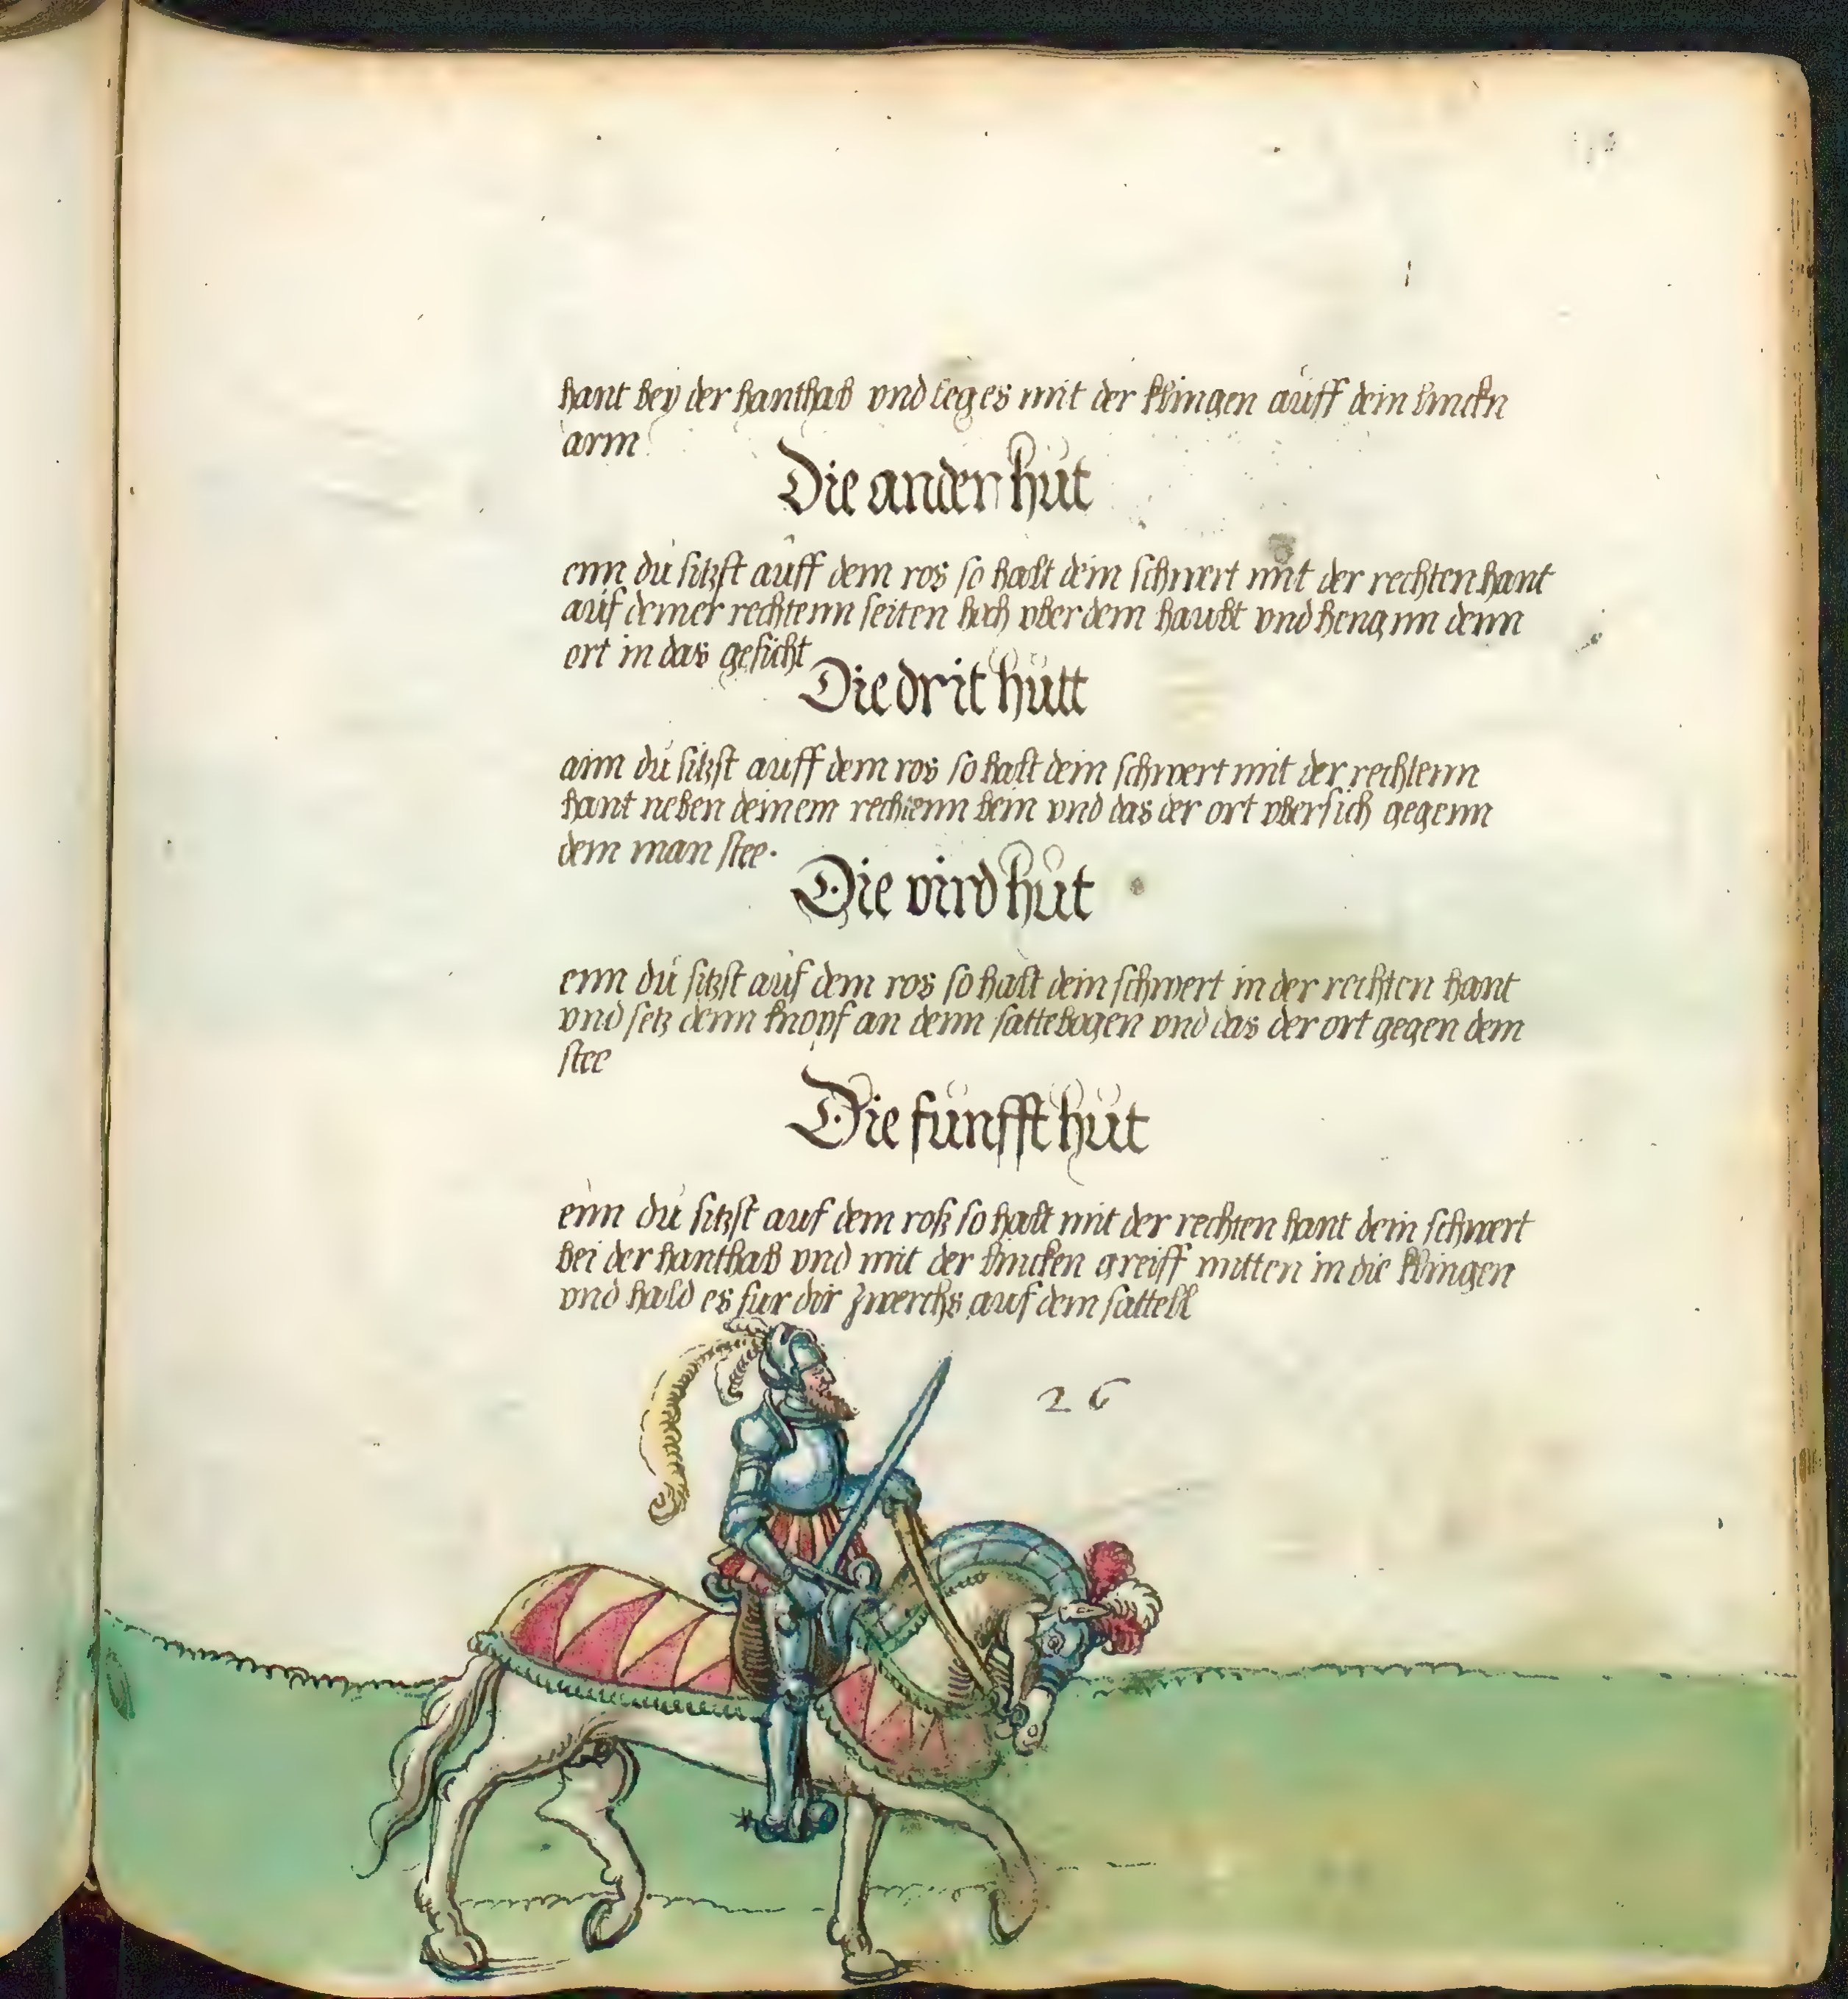 hant bey der hanthab vnd leg es mit der klingen auff dein linckn
arm
Die ander hut
enn du sitzst auff dem ros so halt dein schwert mit der rechten hant
auf deiner rechtenn seiten hoch vber dem haubt vnd heng im denn
ort in das gesicht
Die drit hutt
ann du sitzst auff dem ros so halt dein schwert mit der rechtenn
hant neben deinem rechtenn bein vnd das der ort vbersich gegenn
dem man stee.
Die vird hut
enn du sitzst auf dem ros so halt dein schwert in der rechten hant
vnd setz denn knopf an denn sattebogen vnd das der ort gegen dem
stee
Die funfft hut
enn du sitzst auf dem roß so halt mit der rechten hant dein schwert
bei der hanthab vnd mit der lincken greiff mitten in die klingen
vnd hald es fur dir zwerchs auf dem sattell
26